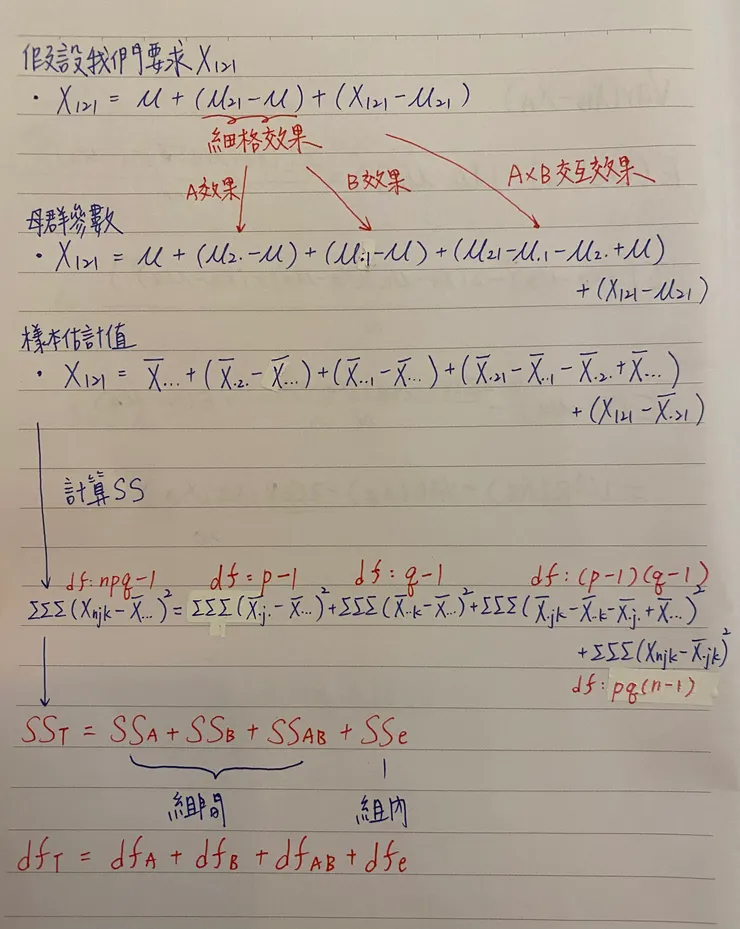 假設我們要求 X₁₂₁
· X₁₂₁ = μ + (μ₂₁ - μ) + (X₁₂₁ - μ₂₁)
細格效果
A效果 B效果 A×B交互效果
母群參數
· X₁₂₁ = μ + (μ₂. - μ) + (μ.₁ - μ) + (μ₂₁ - μ.₁ - μ₂. + μ)
+ (X₁₂₁ - μ₂₁)
樣本估計值
· X₁₂₁ = X̅... + (X̅.₂. - X̅...) + (X̅..₁ - X̅...) + (X̅.₂₁ - X̅..₁ - X̅.₂. + X̅...)
+ (X₁₂₁ - X̅.₂₁)
計算SS
df: npq-1 df = p-1 df: q-1 df: (p-1)(q-1)
ΣΣΣ(Xnjk - X̅...)² = ΣΣΣ(X̅.j. - X̅...)² + ΣΣΣ(X̅..k - X̅...)² + ΣΣΣ(X̅.jk - X̅..k - X̅.j. + X̅...)²
+ ΣΣΣ(Xnjk - X̅.jk)²
df: pq(n-1)
SST = SSA + SSB + SSAB + SSe
組間 組內
dfT = dfA + dfB + dfAB + dfe